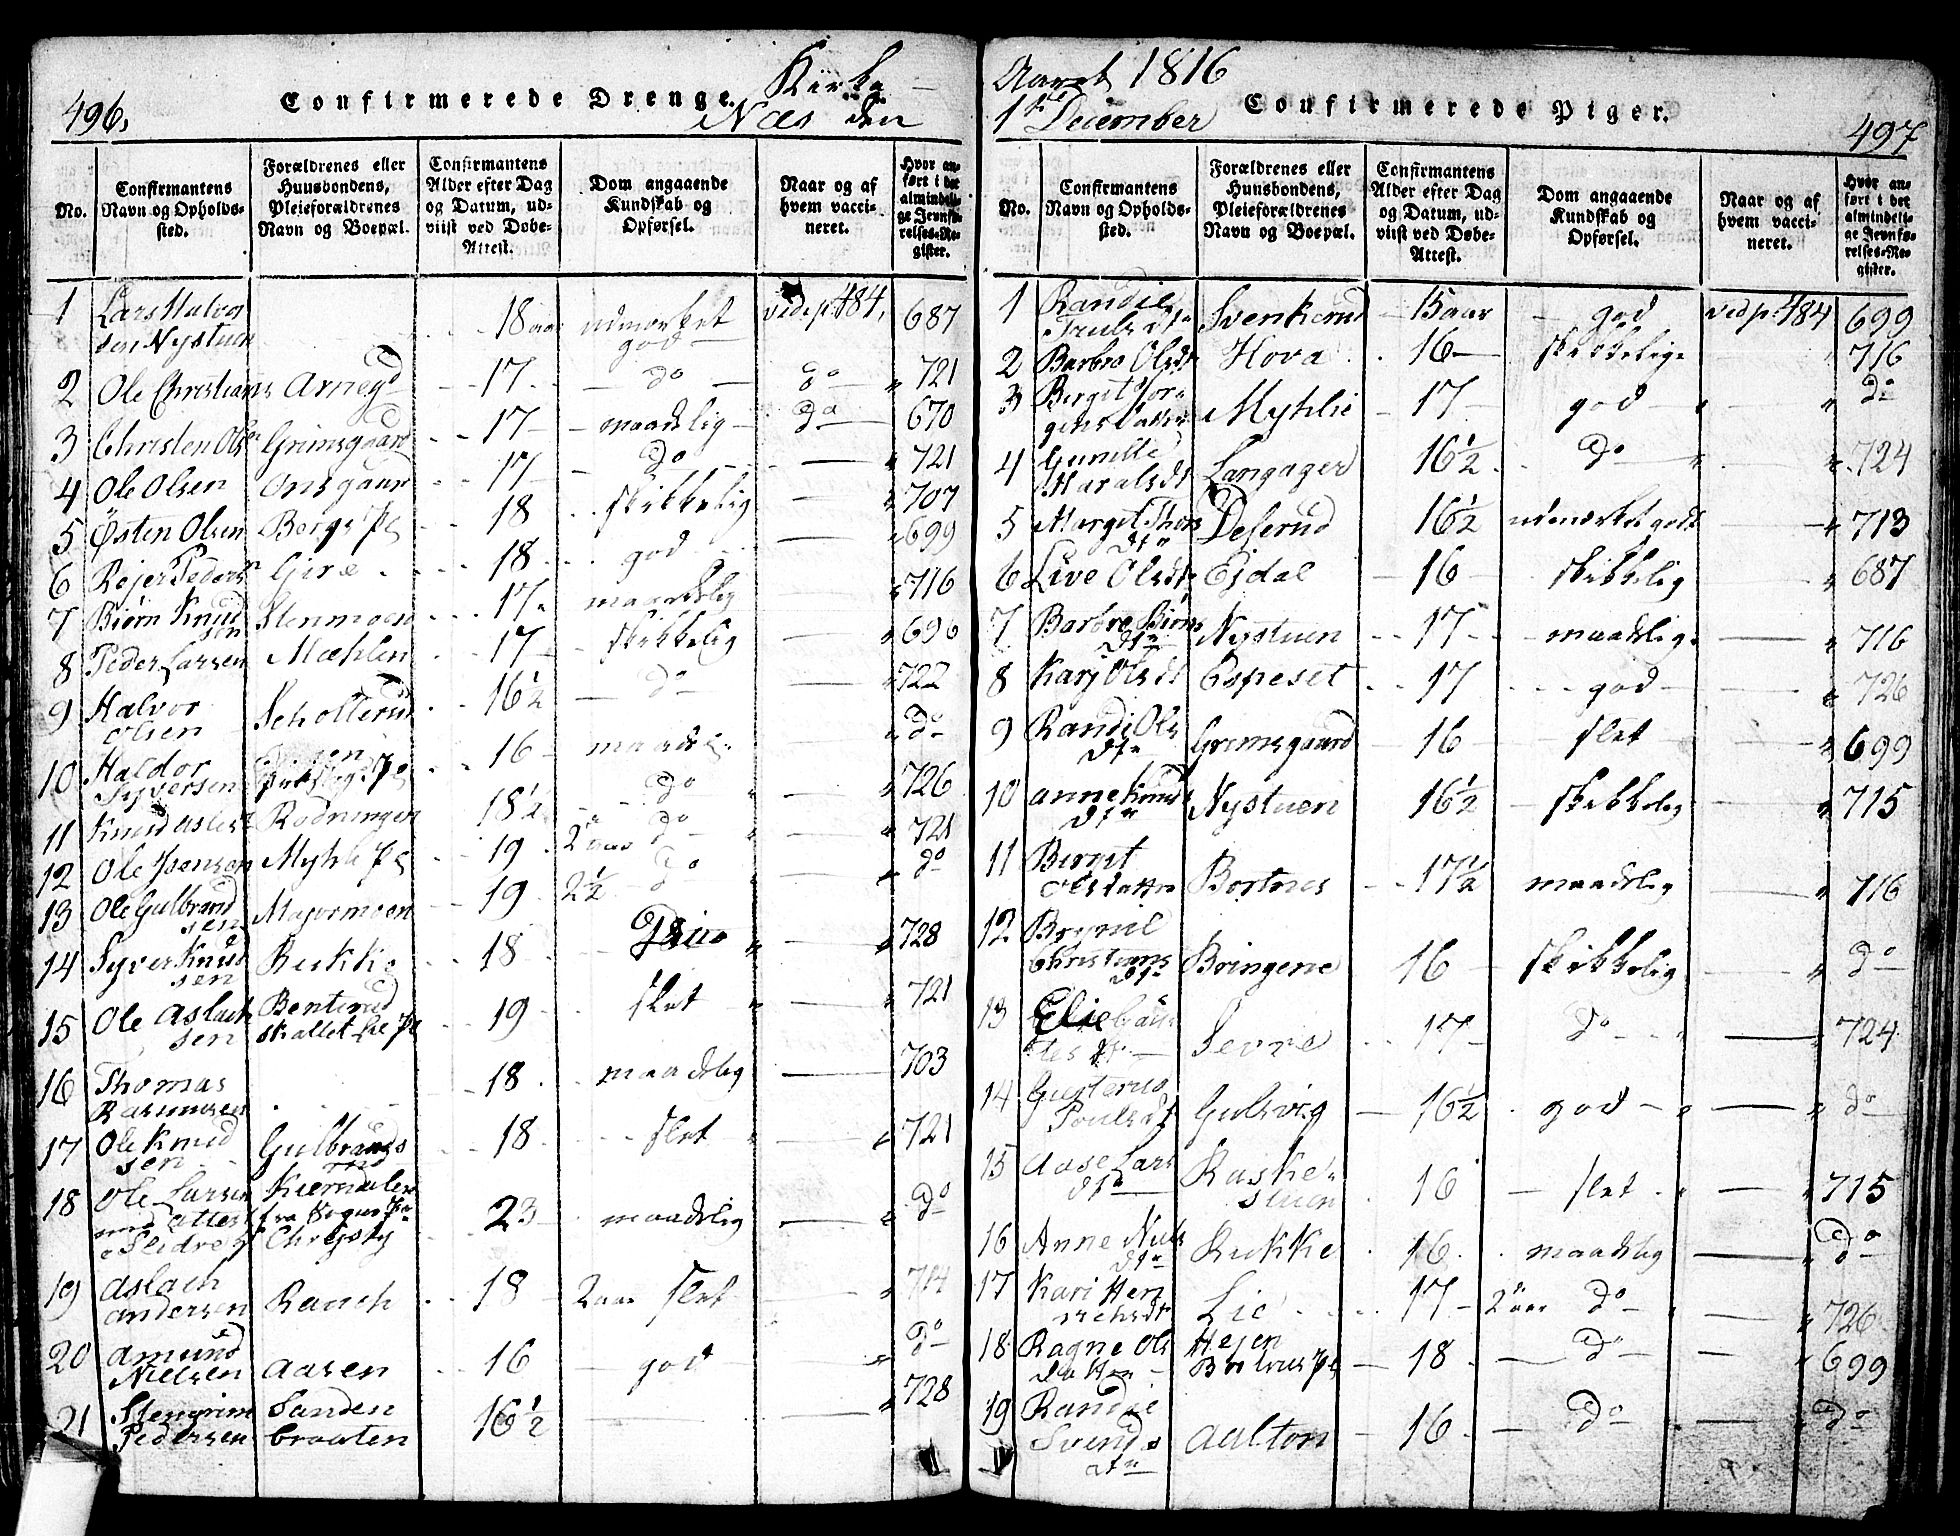 496,
Confirmerede Drenge.
Kirke
Næs den
No.
Confirmantens Navn og Opholds-sted.
Forældrenes eller Huusbondens, Pleieforældrenes Navn og Boepæl.
Confirmantens Alder efter Dag og Datum, ud-viist ved Døbe-Attest.
Dom angaaende Kundskab og Opførsel.
Naar og af hvem vacci-neret.
Hvor an-ført i det almindeli-ge Jevnfø-relses-Re-gister.
1 Lars Halvor sen Nystuen 18 aar udmærket god vide p. 484, 687
2 Ole Christians Arnegd 17 do do 721
3 Christen Ols Grimsgaard 17 maadelig do 670
4 Ole Olsen Onsgaard 17 do 721
5 Østen Olsen Bergs Pl 18 skikkelig 707
6 Rejer Peders Gire 18 god 699
7 Biørn Knud sen Stenmoen 17 maadelig 716
8 Peder Larsen Mæhlen 17 skikkelig 696
9 Halvor Olsen Skolterud 16½ do 722
10 Haldor Syversen 16 maadel. do
11 Knud Asles Rodningen 18½ do 726
12 Ole Iversen Myhle Pl 19 2 aar do 721
13 Ole Gulbrand sen Majormoen 19 2½ do do
14 Syver Knud sen Rukke 18 728
15 Ole Aslach sen Benterud Skallet Lie Pl 19 slet 721
16 Thomas Rasmusen 18 maadelig 703
17 Ole Knud sen Gulbrands rud 18 slet 721
18 Ole Larsen med Attest Slidre fra Christy 23 maadelig do
19 Aslach Andersen Ranch 18 2 aar slet 714
20 Amund Nielsen Aasen 16 god do
21 Stengrim Pedersen Sanden braaten 16½ 728
Aaret 1816
1ste December
Confirmerede Piger.
497
No.
Confirmantens Navn og Opholds-sted.
Forældrenes eller Huusbondens, Pleieforældrenes Navn og Boepæl.
Confirmantens Alder efter Dag og Datum, ud-viist ved Døbe-Attest.
Dom angaaende Kundskab og Opførsel.
Naar og af hvem vacci-neret.
Hvor an-ført i det almindeli-ge Jevnfø-relses-Re-gister.
1 Randie Truls dtr Svenkerud 15 aar god ved p. 484 699
2 Barbro Olsdt Hova 16 skikkelige 716
3 Birgit Jør gens Datter Myhlie 17 god do
4 Gunild Haralsdt Langager 16½ do 724
5 Marget Thors dtr Deserud 16½ udmærket godt 713
6 Live Olsdt Ejdal 16 skikkelig 687
7 Barbro Biørns dtr Nystuen 17 maadelig 716
8 Karj Olsdt Espeset 17 god 726
9 Randi Ols dtr Grimsgaard 16 slet 699
10 Anne Knuds dtr Nystuen 16½ skikkelig 715
11 Birgit Olsdatter Bortnes 17½ maadelig 716
12 Brynil Christians dtr Bringene 16 skikkelig do
13 Elie Sevre 17 do 724
14 Gusterud Poulsdt Gulsvig 16½ god do
15 Aase Lars dtr Ruske stuen 16 slet 715
16 Anne Niels dtr Rukke 16 maadelig do
17 Kari Hen richsdt Lie 17 2 aar do 726
18 Ragne Ols datter Hejen Pl 18 do 699
19 Randie Svends dtr Aalton 16 do do